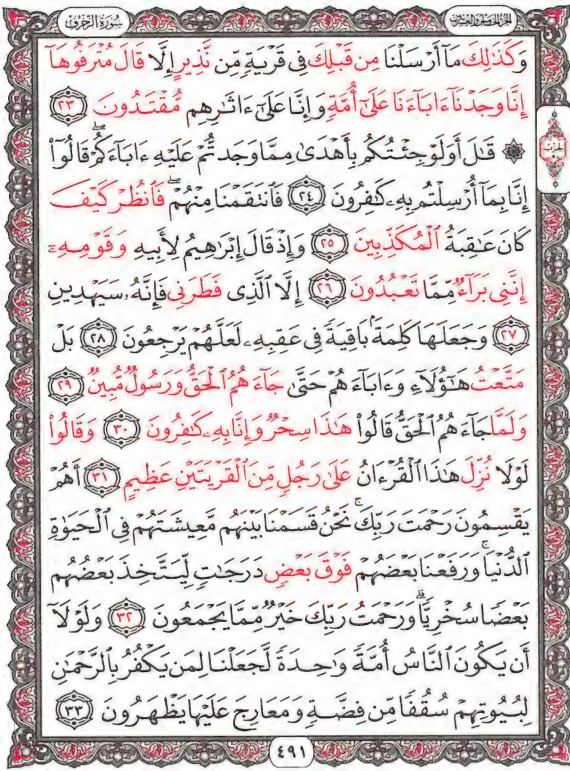 الجزء الخامس والعشرون سورة الزخرف
وَكَذَٰلِكَ مَآ أَرْسَلْنَا مِن قَبْلِكَ فِي قَرْيَةٍ مِّن نَّذِيرٍ إِلَّا قَالَ مُتْرَفُوهَآ
إِنَّا وَجَدْنَآ ءَابَآءَنَا عَلَىٰٓ أُمَّةٍ وَإِنَّا عَلَىٰٓ ءَاثَٰرِهِم مُّقْتَدُونَ ٢٣
۞ قَٰلَ أَوَلَوْ جِئْتُكُم بِأَهْدَىٰ مِمَّا وَجَدتُّمْ عَلَيْهِ ءَابَآءَكُمْۖ قَالُوٓا۟
إِنَّا بِمَآ أُرْسِلْتُم بِهِۦ كَٰفِرُونَ ٢٤ فَٱنتَقَمْنَا مِنْهُمْۖ فَٱنظُرْ كَيْفَ
كَانَ عَٰقِبَةُ ٱلْمُكَذِّبِينَ ٢٥ وَإِذْ قَالَ إِبْرَٰهِيمُ لِأَبِيهِ وَقَوْمِهِۦٓ
إِنَّنِي بَرَآءٌ مِّمَّا تَعْبُدُونَ ٢٦ إِلَّا ٱلَّذِي فَطَرَنِي فَإِنَّهُۥ سَيَهْدِينِ
٢٧ وَجَعَلَهَا كَلِمَةًۢ بَاقِيَةً فِي عَقِبِهِۦ لَعَلَّهُمْ يَرْجِعُونَ ٢٨ بَلْ
مَتَّعْتُ هَٰٓؤُلَآءِ وَءَابَآءَهُمْ حَتَّىٰ جَآءَهُمُ ٱلْحَقُّ وَرَسُولٌ مُّبِينٌ ٢٩
وَلَمَّا جَآءَهُمُ ٱلْحَقُّ قَالُوا۟ هَٰذَا سِحْرٌ وَإِنَّا بِهِۦ كَٰفِرُونَ ٣٠ وَقَالُوا۟
لَوْلَا نُزِّلَ هَٰذَا ٱلْقُرْءَانُ عَلَىٰ رَجُلٍ مِّنَ ٱلْقَرْيَتَيْنِ عَظِيمٍ ٣١ أَهُمْ
يَقْسِمُونَ رَحْمَتَ رَبِّكَۚ نَحْنُ قَسَمْنَا بَيْنَهُم مَّعِيشَتَهُمْ فِي ٱلْحَيَوٰةِ
ٱلدُّنْيَاۚ وَرَفَعْنَا بَعْضَهُمْ فَوْقَ بَعْضٍ دَرَجَٰتٍ لِّيَتَّخِذَ بَعْضُهُم
بَعْضًا سُخْرِيًّاۗ وَرَحْمَتُ رَبِّكَ خَيْرٌ مِّمَّا يَجْمَعُونَ ٣٢ وَلَوْلَآ
أَن يَكُونَ ٱلنَّاسُ أُمَّةً وَٰحِدَةً لَّجَعَلْنَا لِمَن يَكْفُرُ بِٱلرَّحْمَٰنِ
لِبُيُوتِهِمْ سُقُفًا مِّن فِضَّةٍ وَمَعَارِجَ عَلَيْهَا يَظْهَرُونَ ٣٣
٤٩١